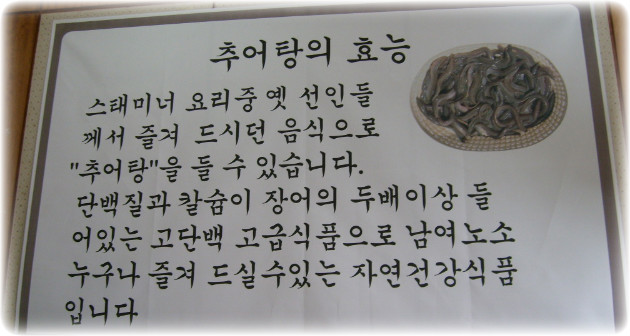 추어탕의 효능
스태미너 요리중 옛 선인들
께서 즐겨 드시던 음식으로
"추어탕"을 들 수 있습니다.
단백질과 칼슘이 장어의 두배이상 들
어있는 고단백 고급식품으로 남여노소
누구나 즐겨 드실수있는 자연건강식품
입니다